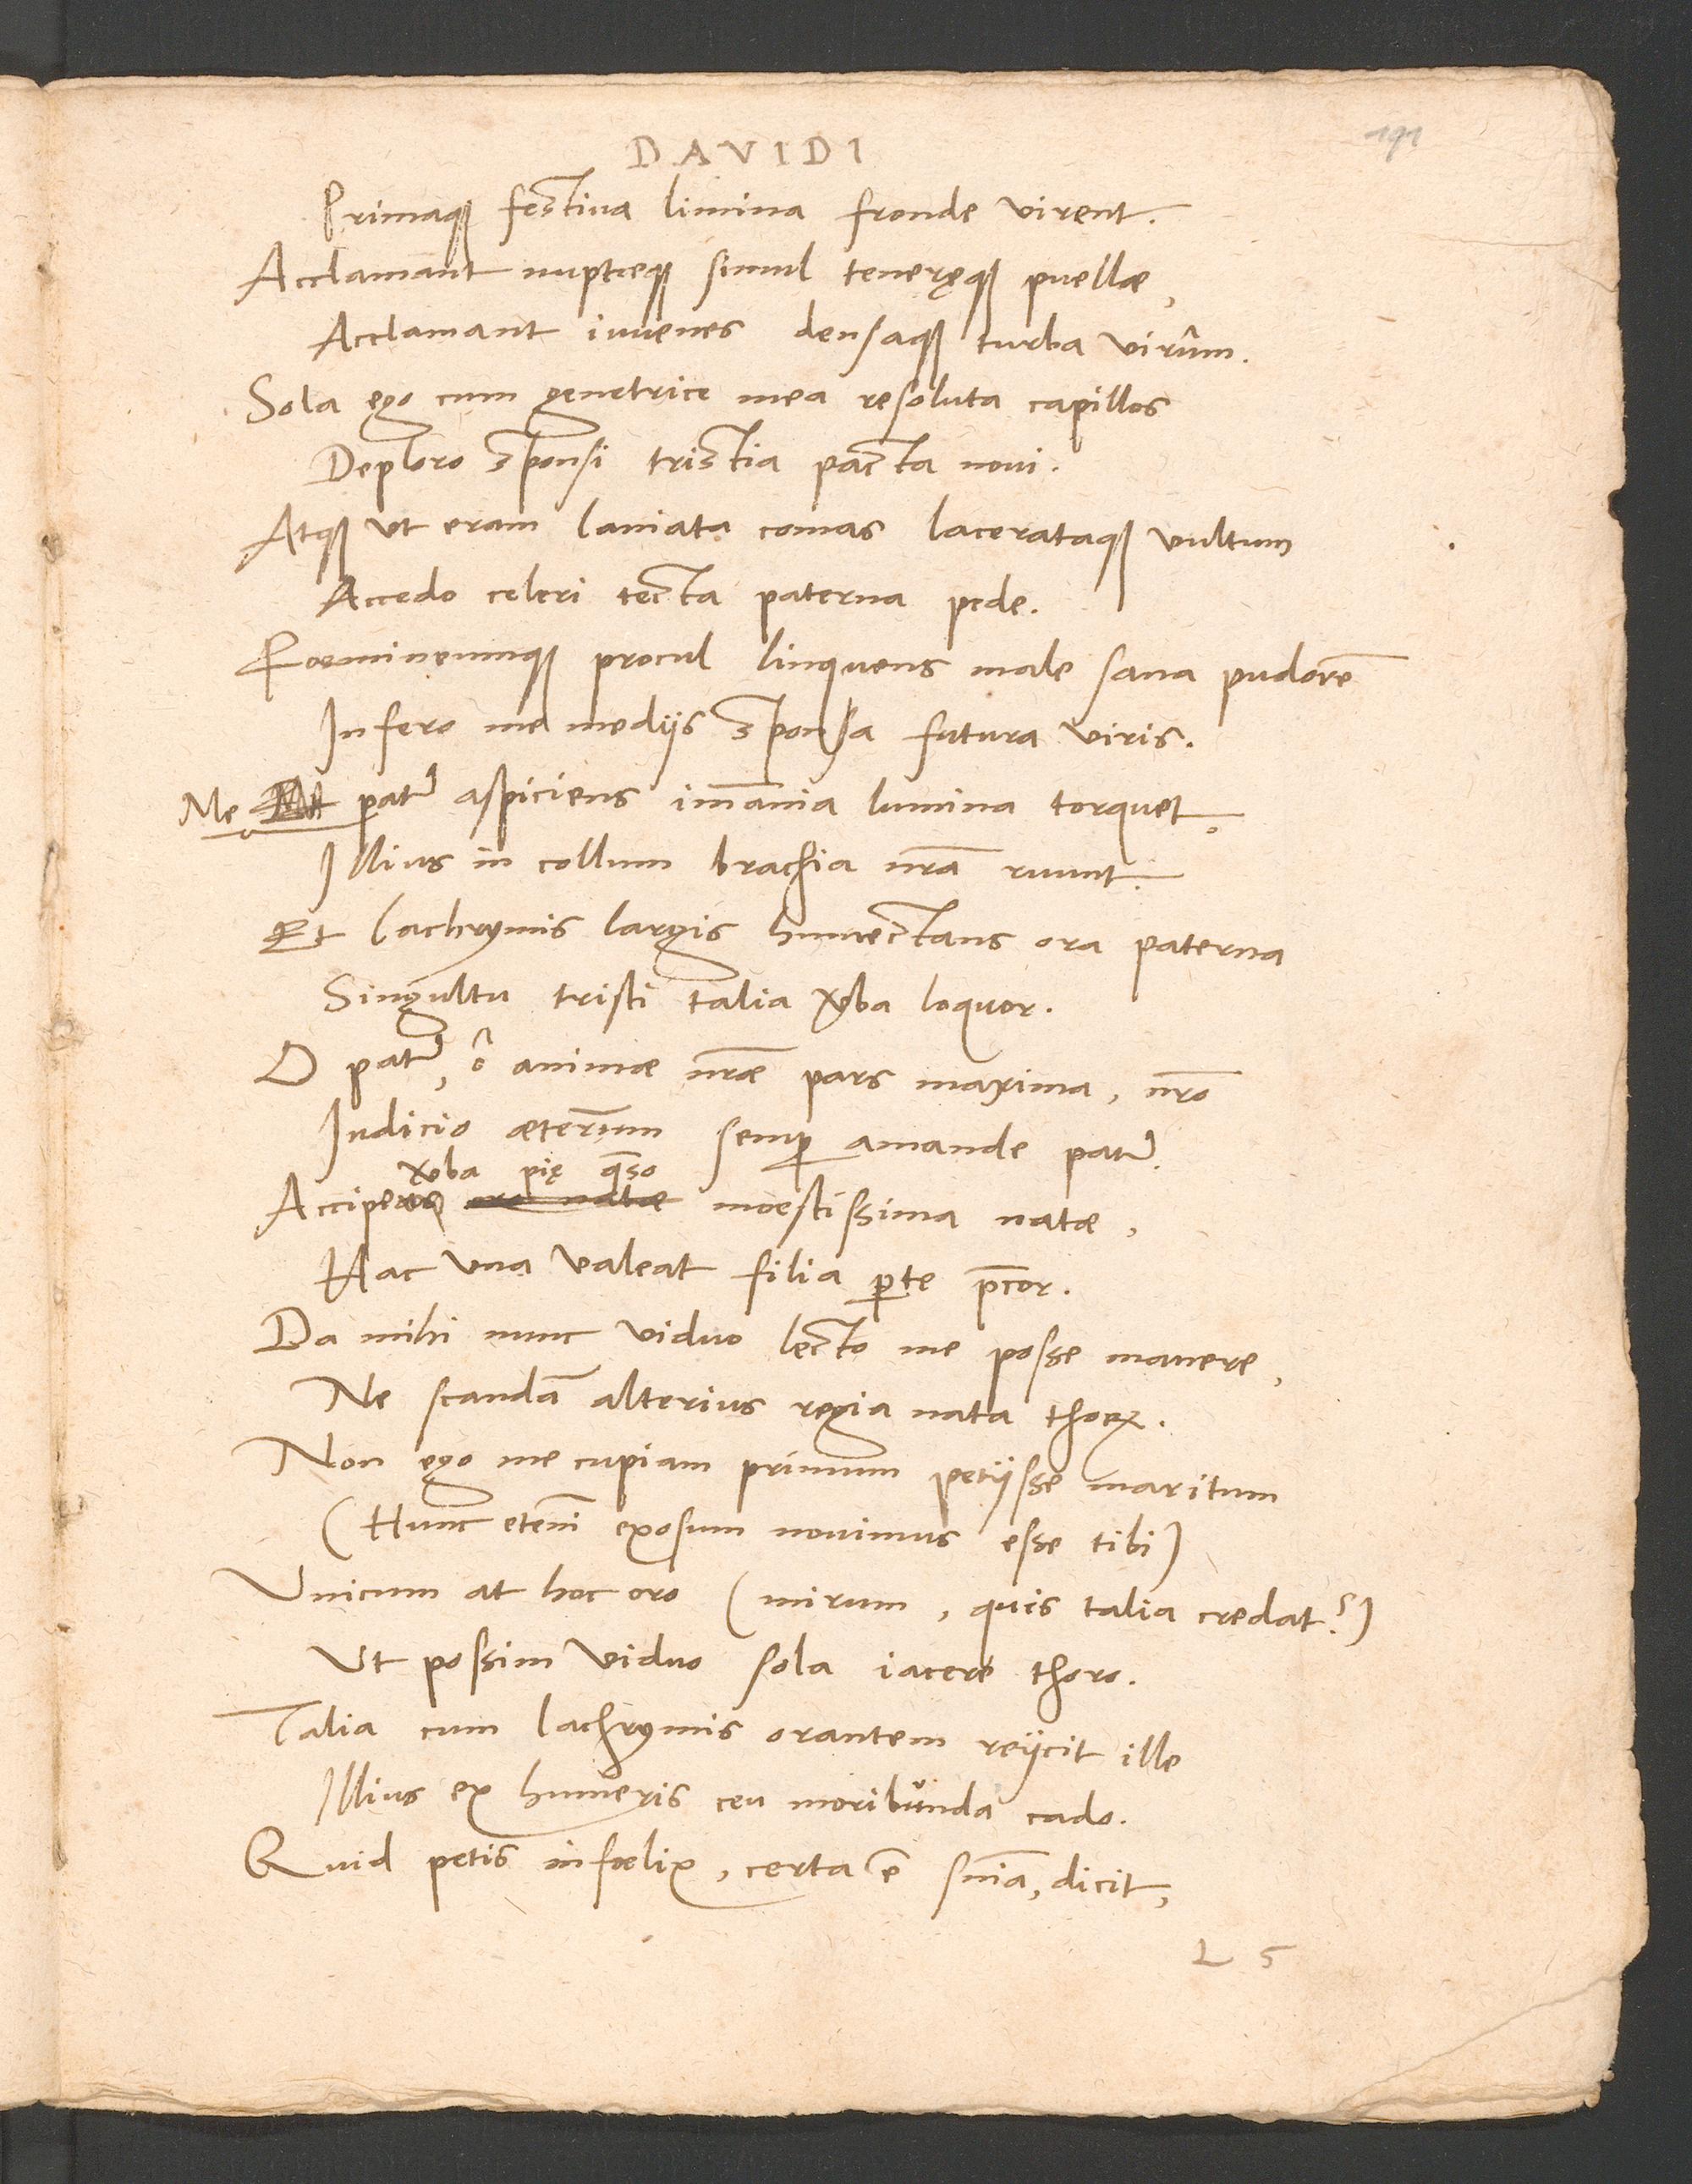 DAVIDI
191
Primaqꝫ festiua limina fronde virent.
Acclamant nuptæqꝫ simul teneręqꝫ puellæ,
Acclamant iuuenes densaqꝫ turba virûm.
Sola ego cum genetrice mea resoluta capillos
Deploro sponsi tristia pacta noui.
Atqꝫ vt eram laniata comas laceratаqꝫ vultum
Accedo celeri tecta paterna pede.
Foemineumqꝫ procul linquens male sana pudorē
Infero me medijs sponsa futura viris.
Me pater aspiciens im̄ania lumina torquet.
Illius in collum brachia nrā ruunt.
Et lachrymis largis humectans ora paterna
Singultu tristi talia verba loquor.
O pater, ô animæ nrǣ pars maxima, nrō
Iudicio æternum semper amande pater.
verba pię quęso
Accipe oro natæ moestissima natæ,
Hac vna valeat filia parte precor.
Da mihi nunc viduo lecto me posse manere,
Ne scandā alterius regia nata thorꝫ.
Non ego me cupiam primum petijsse maritum
(Hunc etenī exosum nouimus esse tibi)
Vnicum at hoc oro (mirum, quis talia credat?)
Vt possim viduo sola iacere thoro.
Talia cum lachrymis orantem reijcit ille
Illius ex humeris ceu moribunda cado.
Quid petis infœlix, certa ē snīa, dicit,
L 5